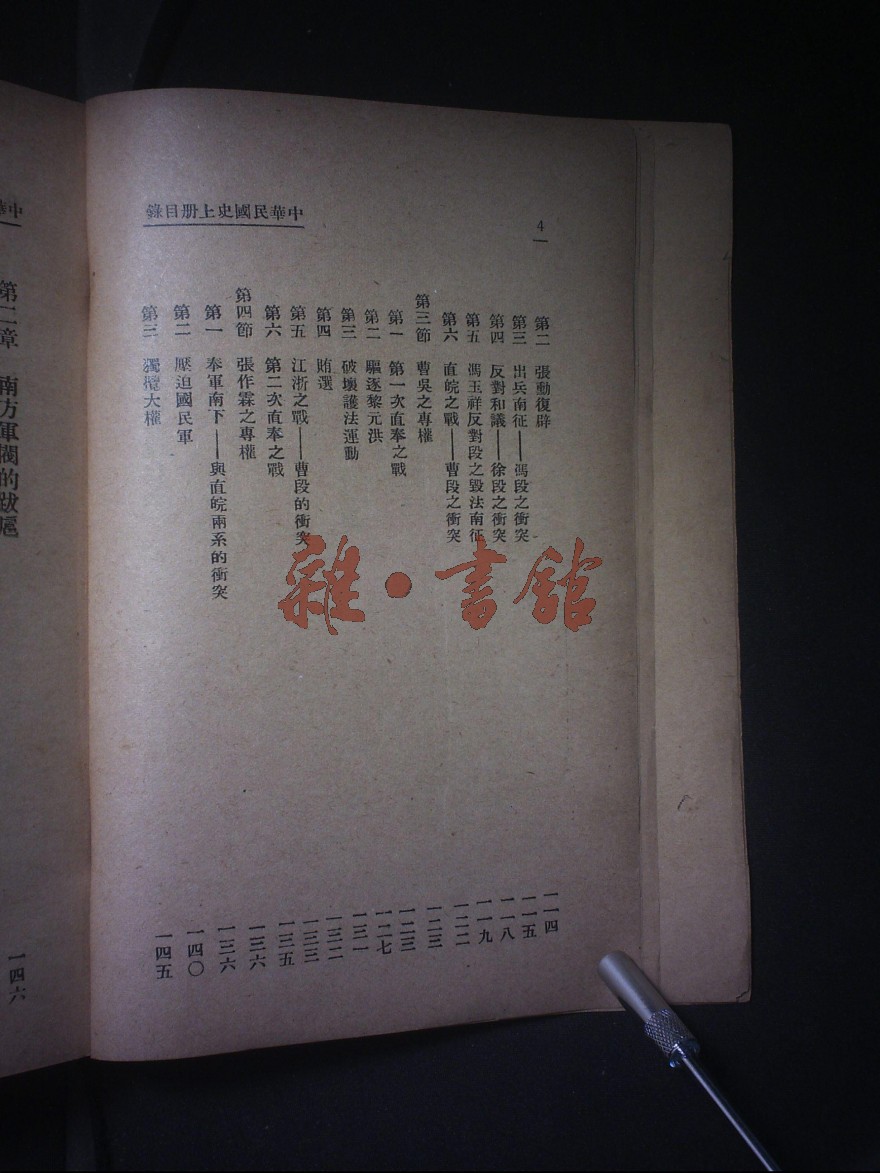 中華民國史上册目錄
4
第二 張勳復辟 一一四
第三 出兵南征——馮段之衝突 一一五
第四 反對和議——徐段之衝突 一一八
第五 馮玉祥反對段之毀法南征 一一九
第六 直皖之戰——曹段之衝突 一二二
第三節 曹吳之專權 一二三
第一 第一次直奉之戰 一二三
第二 驅逐黎元洪 一二七
第三 破壞護法運動 一三一
第四 賄選 一三二
第五 江浙之戰——曹段的衝突 一三三
第六 第二次直奉之戰 一三五
第四節 張作霖之專權 一三六
第一 奉軍南下——與直皖兩系的衝突 一三六
第二 壓迫國民軍 一四〇
第三 獨攬大權 一四五
第二章 南方軍閥的跋扈 一四六
雜·書館